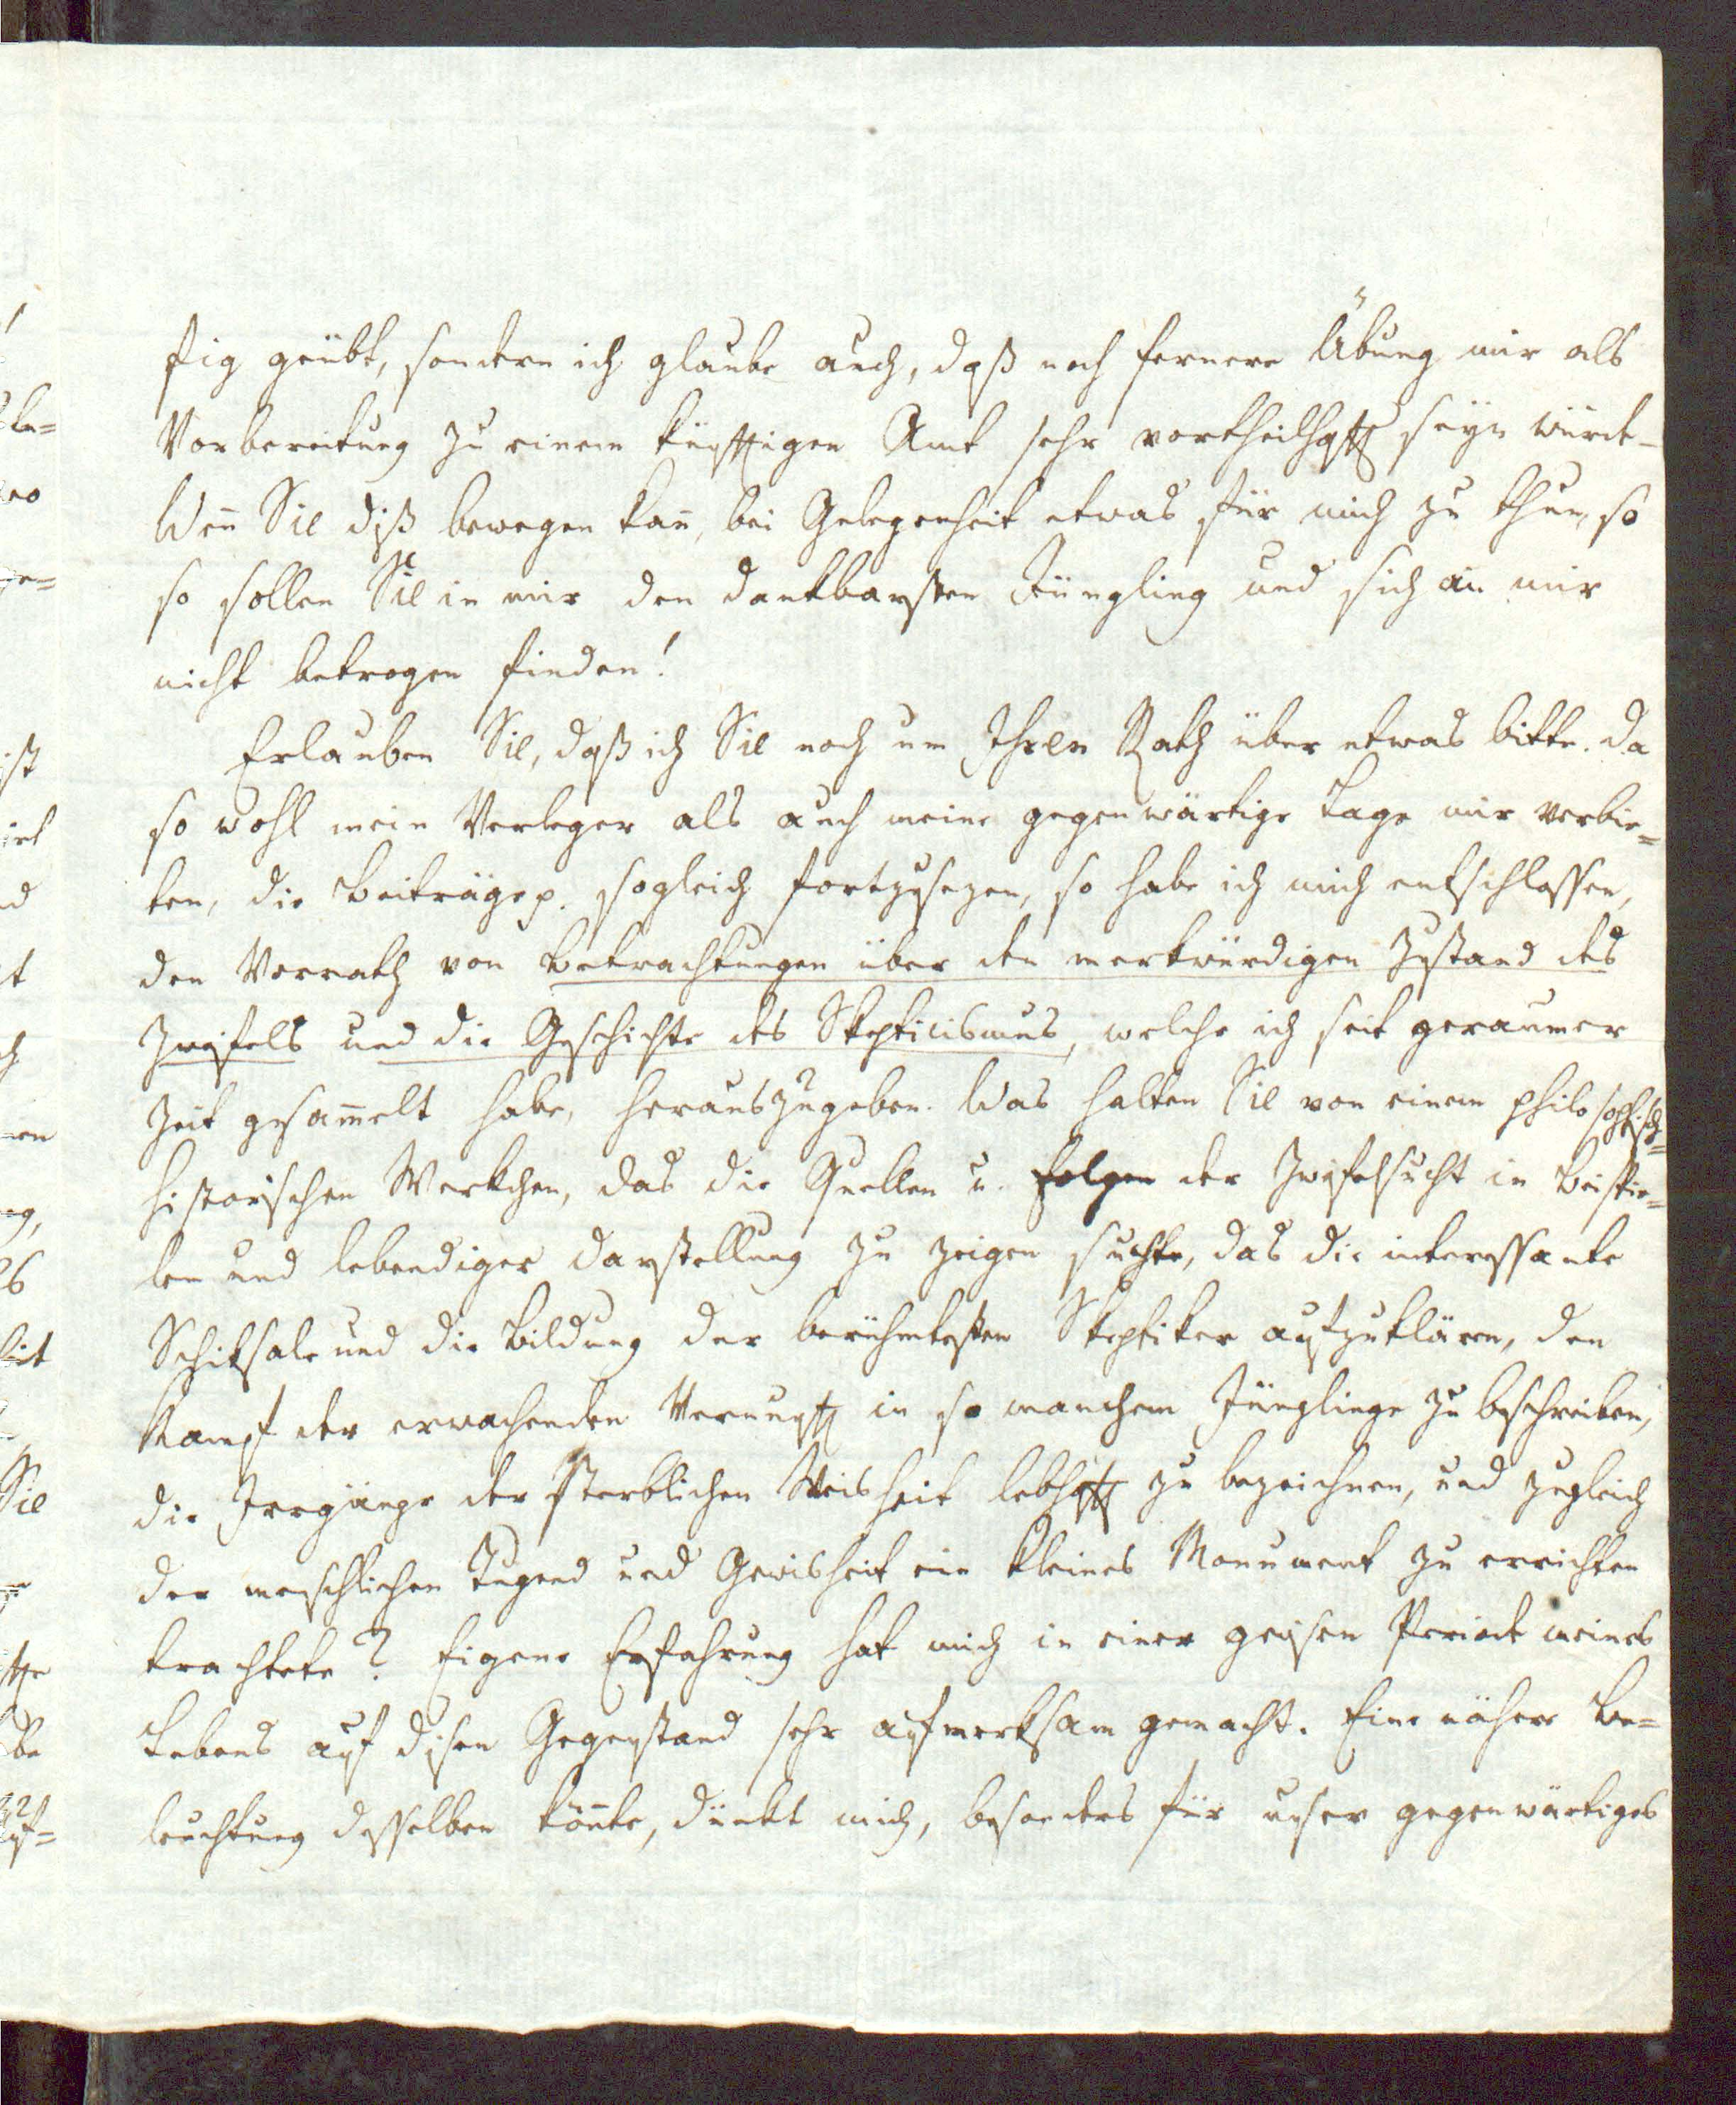 ftig geübt, sondern ich glaube auch, daß noch fernere Übung mir als
Vorbereitung zu einem künftigen Amt sehr vortheilhaft seyn würde –
Weñ Sie diß bewegen kañ, bei Gelegenheit etwas für mich zu thun, so
so sollen Sie in mir den dankbarsten Jüngling und sich an mir
nicht betrogen finden!
Erlauben Sie, daß ich Sie noch um Ihren Rath über etwas bitte. Da
so wohl mein Verleger als auch meine gegenwärtige Lage mir verbie=
ten, die Beiträge p. sogleich fortzusezen, so habe ich mich entschlossen,
den Vorrath von Betrachtungen über den merkwürdigen Zustand des
Zweifels und die Geschichte des Skepticismus, welche ich seit geraumer
Zeit gesam̄elt habe, herauszugeben. Was halten Sie von einem philosophisch=
historischen Werkchen, das die Quellen u. Folgen der Zweifelsucht in Beispie=
len und lebendiger Darstellung zu zeigen suchte, das die interessante
Schiksale und die Bildung der berühmtesten Skeptiker aufzuklären, den
Kampf der erwachenden Vernunft in so manchem Jünglinge zu beschreiben,
die Irrgänge der sterblichen Weisheit lebhaft zu bezeichnen, und zugleich
der menschlichen Tugend und Gewisheit ein kleines Monument zu errichten
trachtete? Eigene Erfahrung hat mich in einer gewisen Periode meines
Lebens auf disen Gegenstand sehr aufmerksam gemacht. Eine nähere Be=
leuchtung desselben kön̄te, dünkt mich, besonders für unser gegenwärtiges